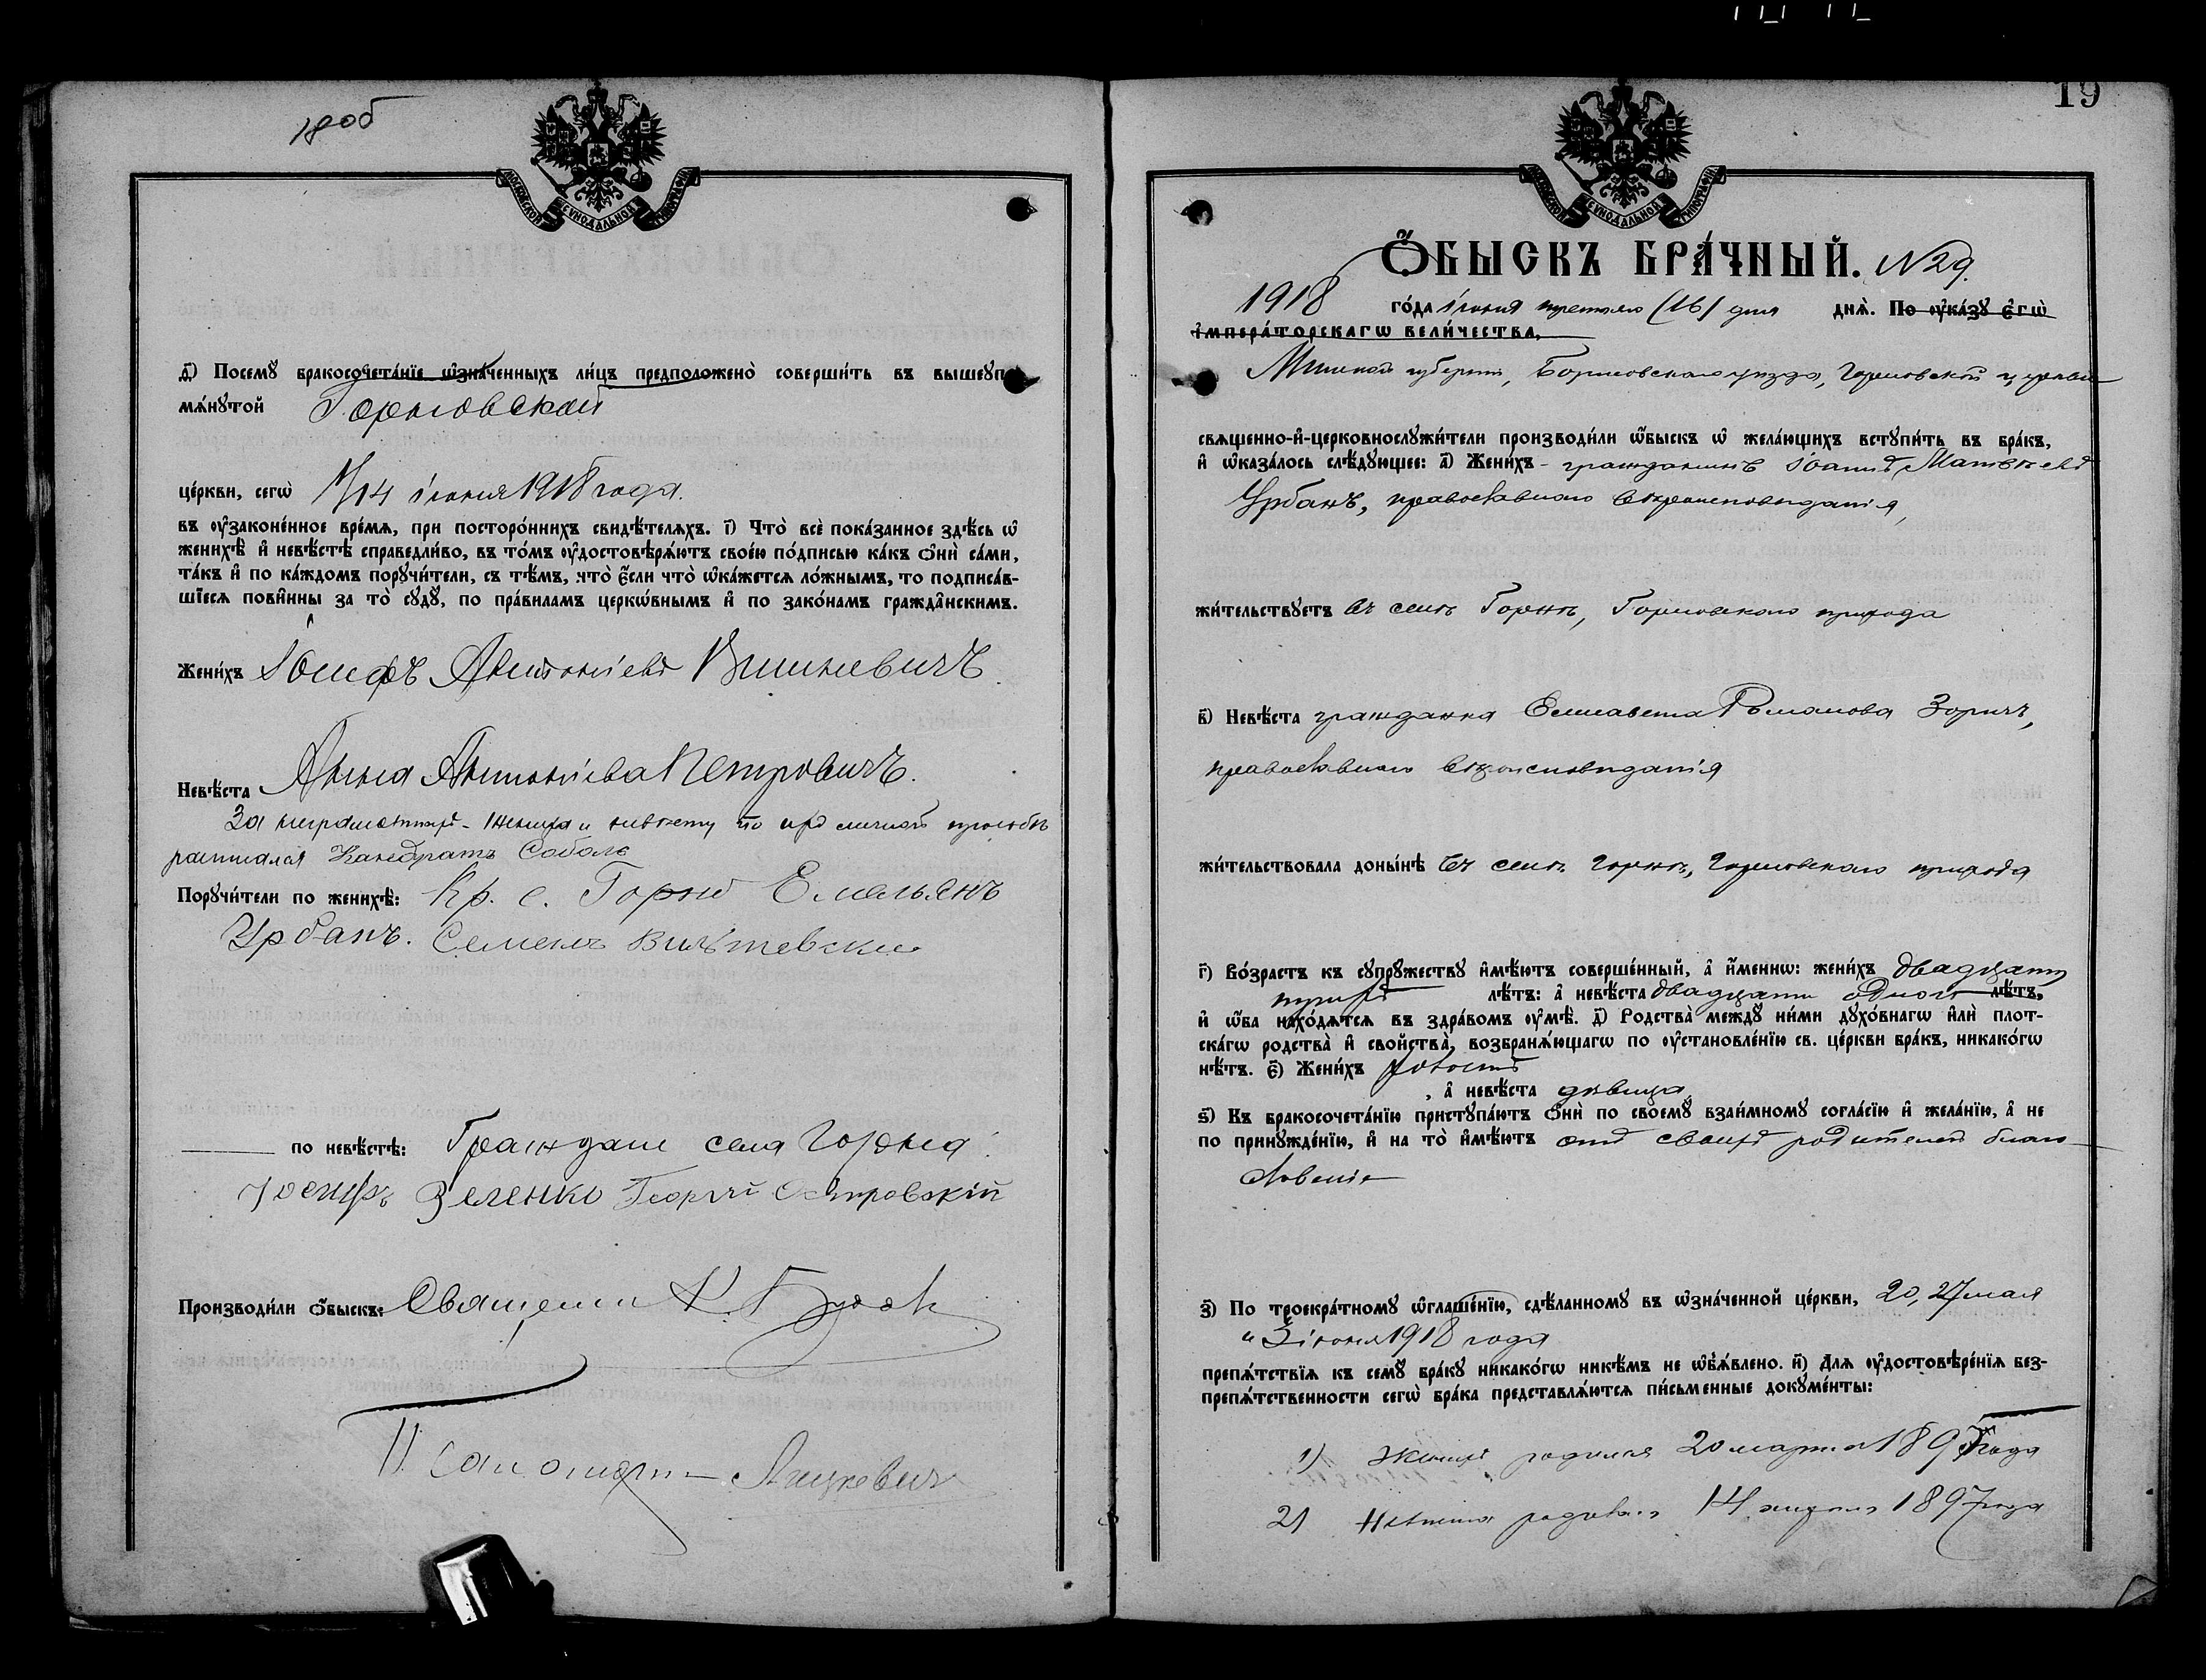 18 об
МОСКОВСКОЙ СУНОДАЛЬНОЙ ТИПОГРАФІИ
ѳ҃) Посемꙋ бракосочета́нїе ѡ҆зна́ченныхъ ли́цъ предположено̀ соверши́ть въ вышеꙋпо-
мѧ́нꙋтой Горновской
це́ркви, сегѡ̀ 1/14 іюня 1918 года.
въ ᲂу҆законе́нное вре́мѧ, при посторо́ннихъ свидѣ́телѧхъ. і҃) Что̀ всѐ пока́занное здѣ́сь ѡ҆
женихѣ̀ и҆ невѣ́стѣ справедли́во, въ то́мъ ᲂу҆достовѣрѧ́ютъ свое́ю по́дписью ка́къ ѻ҆нѝ са́ми,
та́къ и҆ по ка́ждомъ порꙋчи́тели, съ тѣ́мъ, что̀ є҆́сли что̀ ѡ҆ка́жетсѧ ло́жнымъ, то подписа́в-
шїесѧ пови́нны за то̀ сꙋдꙋ̀, по пра́виламъ церкѡ́внымъ и҆ по зако́намъ гражда̑нскимъ.
Жени́хъ Іосифъ Антоніевъ Вишневичъ.
Невѣ́ста Анна Антоніева Петровичъ.
За неграмотныхъ жениха и невѣсту по ихъ личной просьбѣ
росписался Кандратъ Соболь
Порꙋчи́тели по женихѣ̀: Кр. с. Горно Емельянъ
Урбанъ. Семенъ
по невѣ́стѣ: Граждане села Горна
Іосифъ Зеленко Георгій Островскій
Производи́ли ѻ҆́быскъ: Священникъ К.
Псаломщикъ Яцкевичъ
19
МОСКОВСКОЙ СУНОДАЛЬНОЙ ТИПОГРАФІИ
Ѻ҆́БЫСКЪ БРА́ЧНЫЙ. №29.
1918 го́да іюня третьяго (16) дня днѧ̀. По ᲂу҆ка́зꙋ є҆гѡ̀
и҆мпера́торскагѡ вели́чества,
Минской губерніи, Борисовскаго уѣзда, Горновской церкви
свѧщенно-и҆-церковнослꙋжи́тели производи́ли ѻ҆́быскъ ѡ҆ жела́ющихъ встꙋпи́ть въ бра́къ,
и҆ ѡ҆каза́лось слѣ́дꙋющее: а҃) Жени́хъ - гражданинъ Іоаннъ Матвѣевъ
Урбанъ, православнаго вѣроисповѣданія,
жи́тельствꙋетъ въ селѣ Горнѣ, Горновскаго прихода
в҃) Невѣ́ста гражданка Елисавета Романова Зоричъ,
православнаго вѣроисповѣданія
жи́тельствовала доны́нѣ въ селѣ Горнѣ, Горновскаго прихода
г҃) Во́зрастъ къ сꙋпрꙋ́жествꙋ и҆мѣ́ютъ соверше́нный, а҆ и҆́меннѡ: жени́хъ двадцати
трехъ лѣ́тъ: а҆ невѣ́ста двадцати одного лѣ́тъ,
и҆ ѻ҆́ба нахо́дѧтсѧ въ здра́вомъ ᲂу҆мѣ̀. д҃) Родства̀ междꙋ ни́ми дꙋхо́внагѡ и҆лѝ плот-
ска́гѡ родства̀ и҆ свойства̀, возбранѧ́ющагѡ по ᲂу҆становле́нїю св. це́ркви бра́къ, никако́гѡ
нѣ́тъ. є҃) Жени́хъ холостъ
, а҆ невѣ́ста дѣвица
ѕ҃) Къ бракосочета́нїю пристꙋпа́ютъ ѻ҆нѝ по своемꙋ̀ взаи́мномꙋ согла́сїю и҆ жела́нїю, а҆ не
по принꙋжде́нїю, и҆ на то̀ и҆мѣ́ютъ отъ своихъ родителей благо-
словеніе
з҃) По троекра́тномꙋ ѡ҆глаше́нїю, сдѣ́ланномꙋ въ ѡ҆зна́ченной це́ркви, 20, 27 мая
и 3 іюня 1918 года
препѧ́тствїѧ къ семꙋ̀ бра́кꙋ никако́гѡ никѣ́мъ не ѡ҆б̾ѧ́влено. и҃) Длѧ ᲂу҆достовѣре́нїѧ без-
препѧ́тственности сегѡ̀ бра́ка представлѧ́ютсѧ пи́сьменные докꙋме́нты:
1) Женихъ родился 20 марта 1895 года
2) Невѣста родилась 14 апрѣля 1897 года